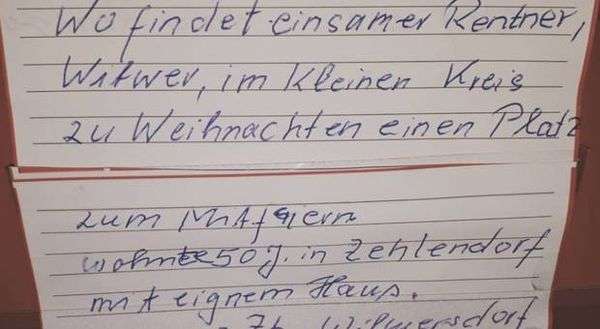 Wo findet einsamer Rentner,
Witwer, im kleinen Kreis
zu Weihnachten einen Platz
zum Mitfeiern
wohnte 50 J. in Zehlendorf
mit eignem Haus.
Wilmersdorf